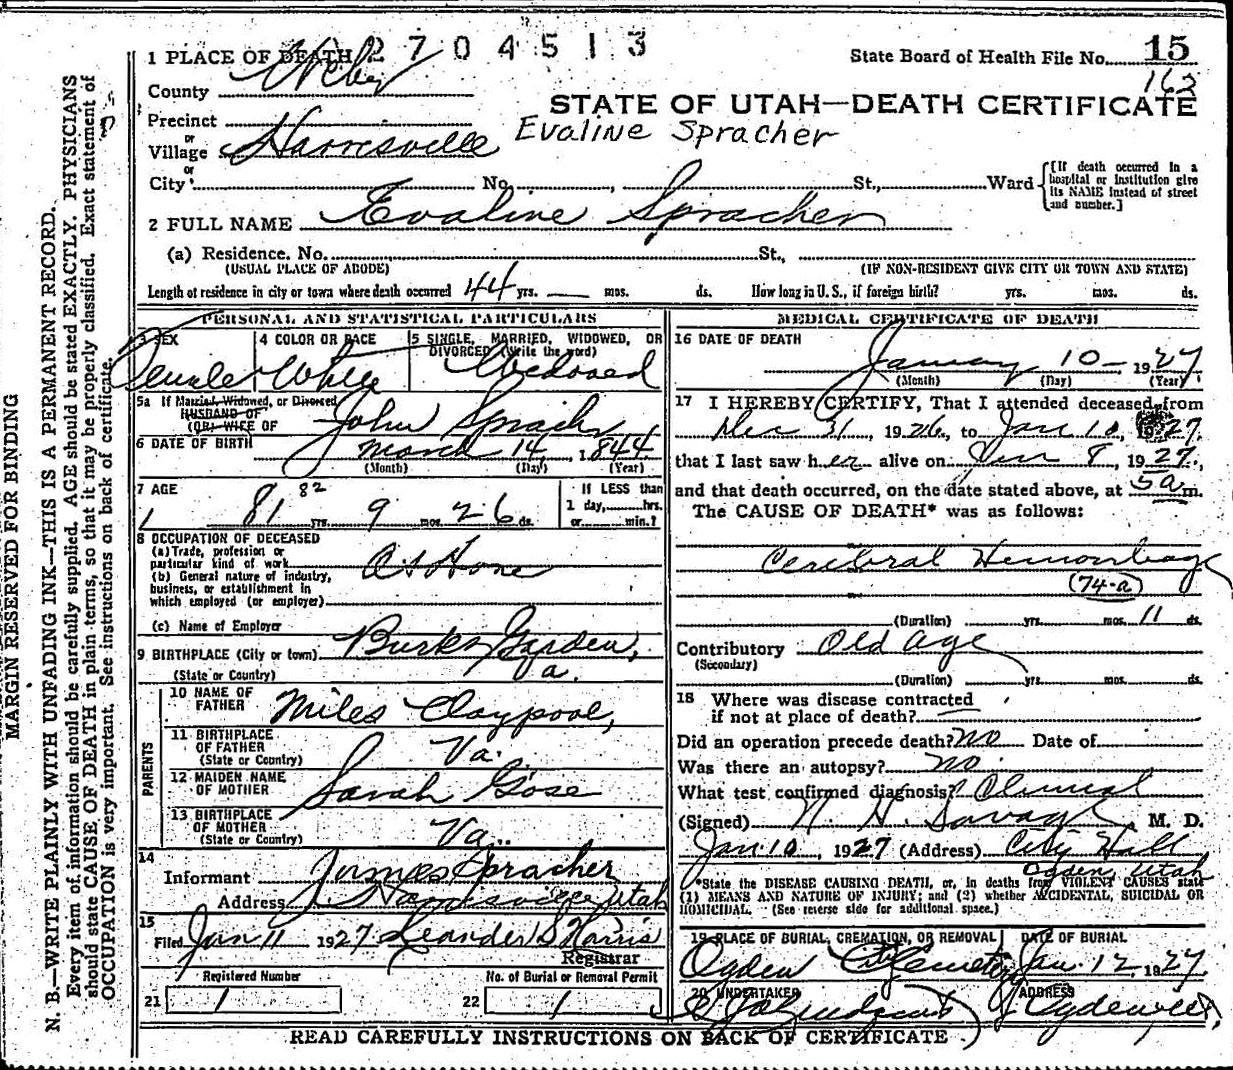 MARGIN RESERVED FOR BINDING
N. B.—WRITE PLAINLY WITH UNFADING INK—THIS IS A PERMANENT RECORD.
Every item of information should be carefully supplied. AGE should be stated EXACTLY. PHYSICIANS
should state CAUSE OF DEATH in plain terms, so that it may be properly classified. Exact statement of
OCCUPATION is very important. See instructions on back of certificate.
2704513
1 PLACE OF DEATH
State Board of Health File No. 15
162
County Weber
STATE OF UTAH—DEATH CERTIFICATE
Precinct
Evaline Spracher
or
Village Harrisville
or
City No. , St., Ward
[If death occurred in a
hospital or institution give
its NAME instead of street
and number.]
2 FULL NAME Evaline Spracher
(a) Residence. No. St.,
(USUAL PLACE OF ABODE) (IF NON-RESIDENT GIVE CITY OR TOWN AND STATE)
Length of residence in city or town where death occurred 44 yrs. — mos. ds. How long in U. S., if foreign birth? yrs. mos. ds.
PERSONAL AND STATISTICAL PARTICULARS
3 SEX Female
4 COLOR OR RACE White
5 SINGLE, MARRIED, WIDOWED, OR
DIVORCED (Write the word) Widowed
5a If Married, Widowed, or Divorced
HUSBAND OF
(OR) WIFE OF John Spracher
6 DATE OF BIRTH March 14, 1844
(Month) (Day) (Year)
7 AGE 82
81 yrs. 9 mos. 26 ds.
If LESS than
1 day, hrs.
or min.?
8 OCCUPATION OF DECEASED
(a) Trade, profession or
particular kind of work At Home
(b) General nature of industry,
business, or establishment in
which employed (or employer)
(c) Name of Employer
9 BIRTHPLACE (City or town) Burks Garden,
(State or Country) Va.
PARENTS
10 NAME OF
FATHER Miles Claypool,
11 BIRTHPLACE
OF FATHER
(State or Country) Va.
12 MAIDEN NAME
OF MOTHER Sarah Gose
13 BIRTHPLACE
OF MOTHER
(State or Country) Va.
14
Informant James Spracher
Address Harrisville Utah
15
Filed Jan 11 1927 Leander S Harris
Registrar
Registered Number
21 1
No. of Burial or Removal Permit
22 1
MEDICAL CERTIFICATE OF DEATH
16 DATE OF DEATH
January 10— 1927
(Month) (Day) (Year)
17 I HEREBY CERTIFY, That I attended deceased from
Dec 31, 1926, to Jan 10, 1927
that I last saw her alive on Jan 8, 1927,
and that death occurred, on the date stated above, at 5 a m.
The CAUSE OF DEATH* was as follows:
Cerebral Hemorrhage
(74-a)
(Duration) yrs. mos. 11 ds
Contributory Old Age
(Secondary)
(Duration) yrs. mos. ds.
18 Where was disease contracted
if not at place of death?
Did an operation precede death? No Date of
Was there an autopsy? No.
What test confirmed diagnosis? Clinical
(Signed) N. H. Savage, M. D.
Jan 10, 1927 (Address) City Hall
Ogden, Utah
*State the DISEASE CAUSING DEATH, or, in deaths from VIOLENT CAUSES state
(1) MEANS AND NATURE OF INJURY; and (2) whether ACCIDENTAL, SUICIDAL OR
HOMICIDAL. (See reverse side for additional space.)
19 PLACE OF BURIAL, CREMATION, OR REMOVAL
Ogden City Cemetery
DATE OF BURIAL
Jan. 12, 1927
20 UNDERTAKER
ADDRESS
READ CAREFULLY INSTRUCTIONS ON BACK OF CERTIFICATE